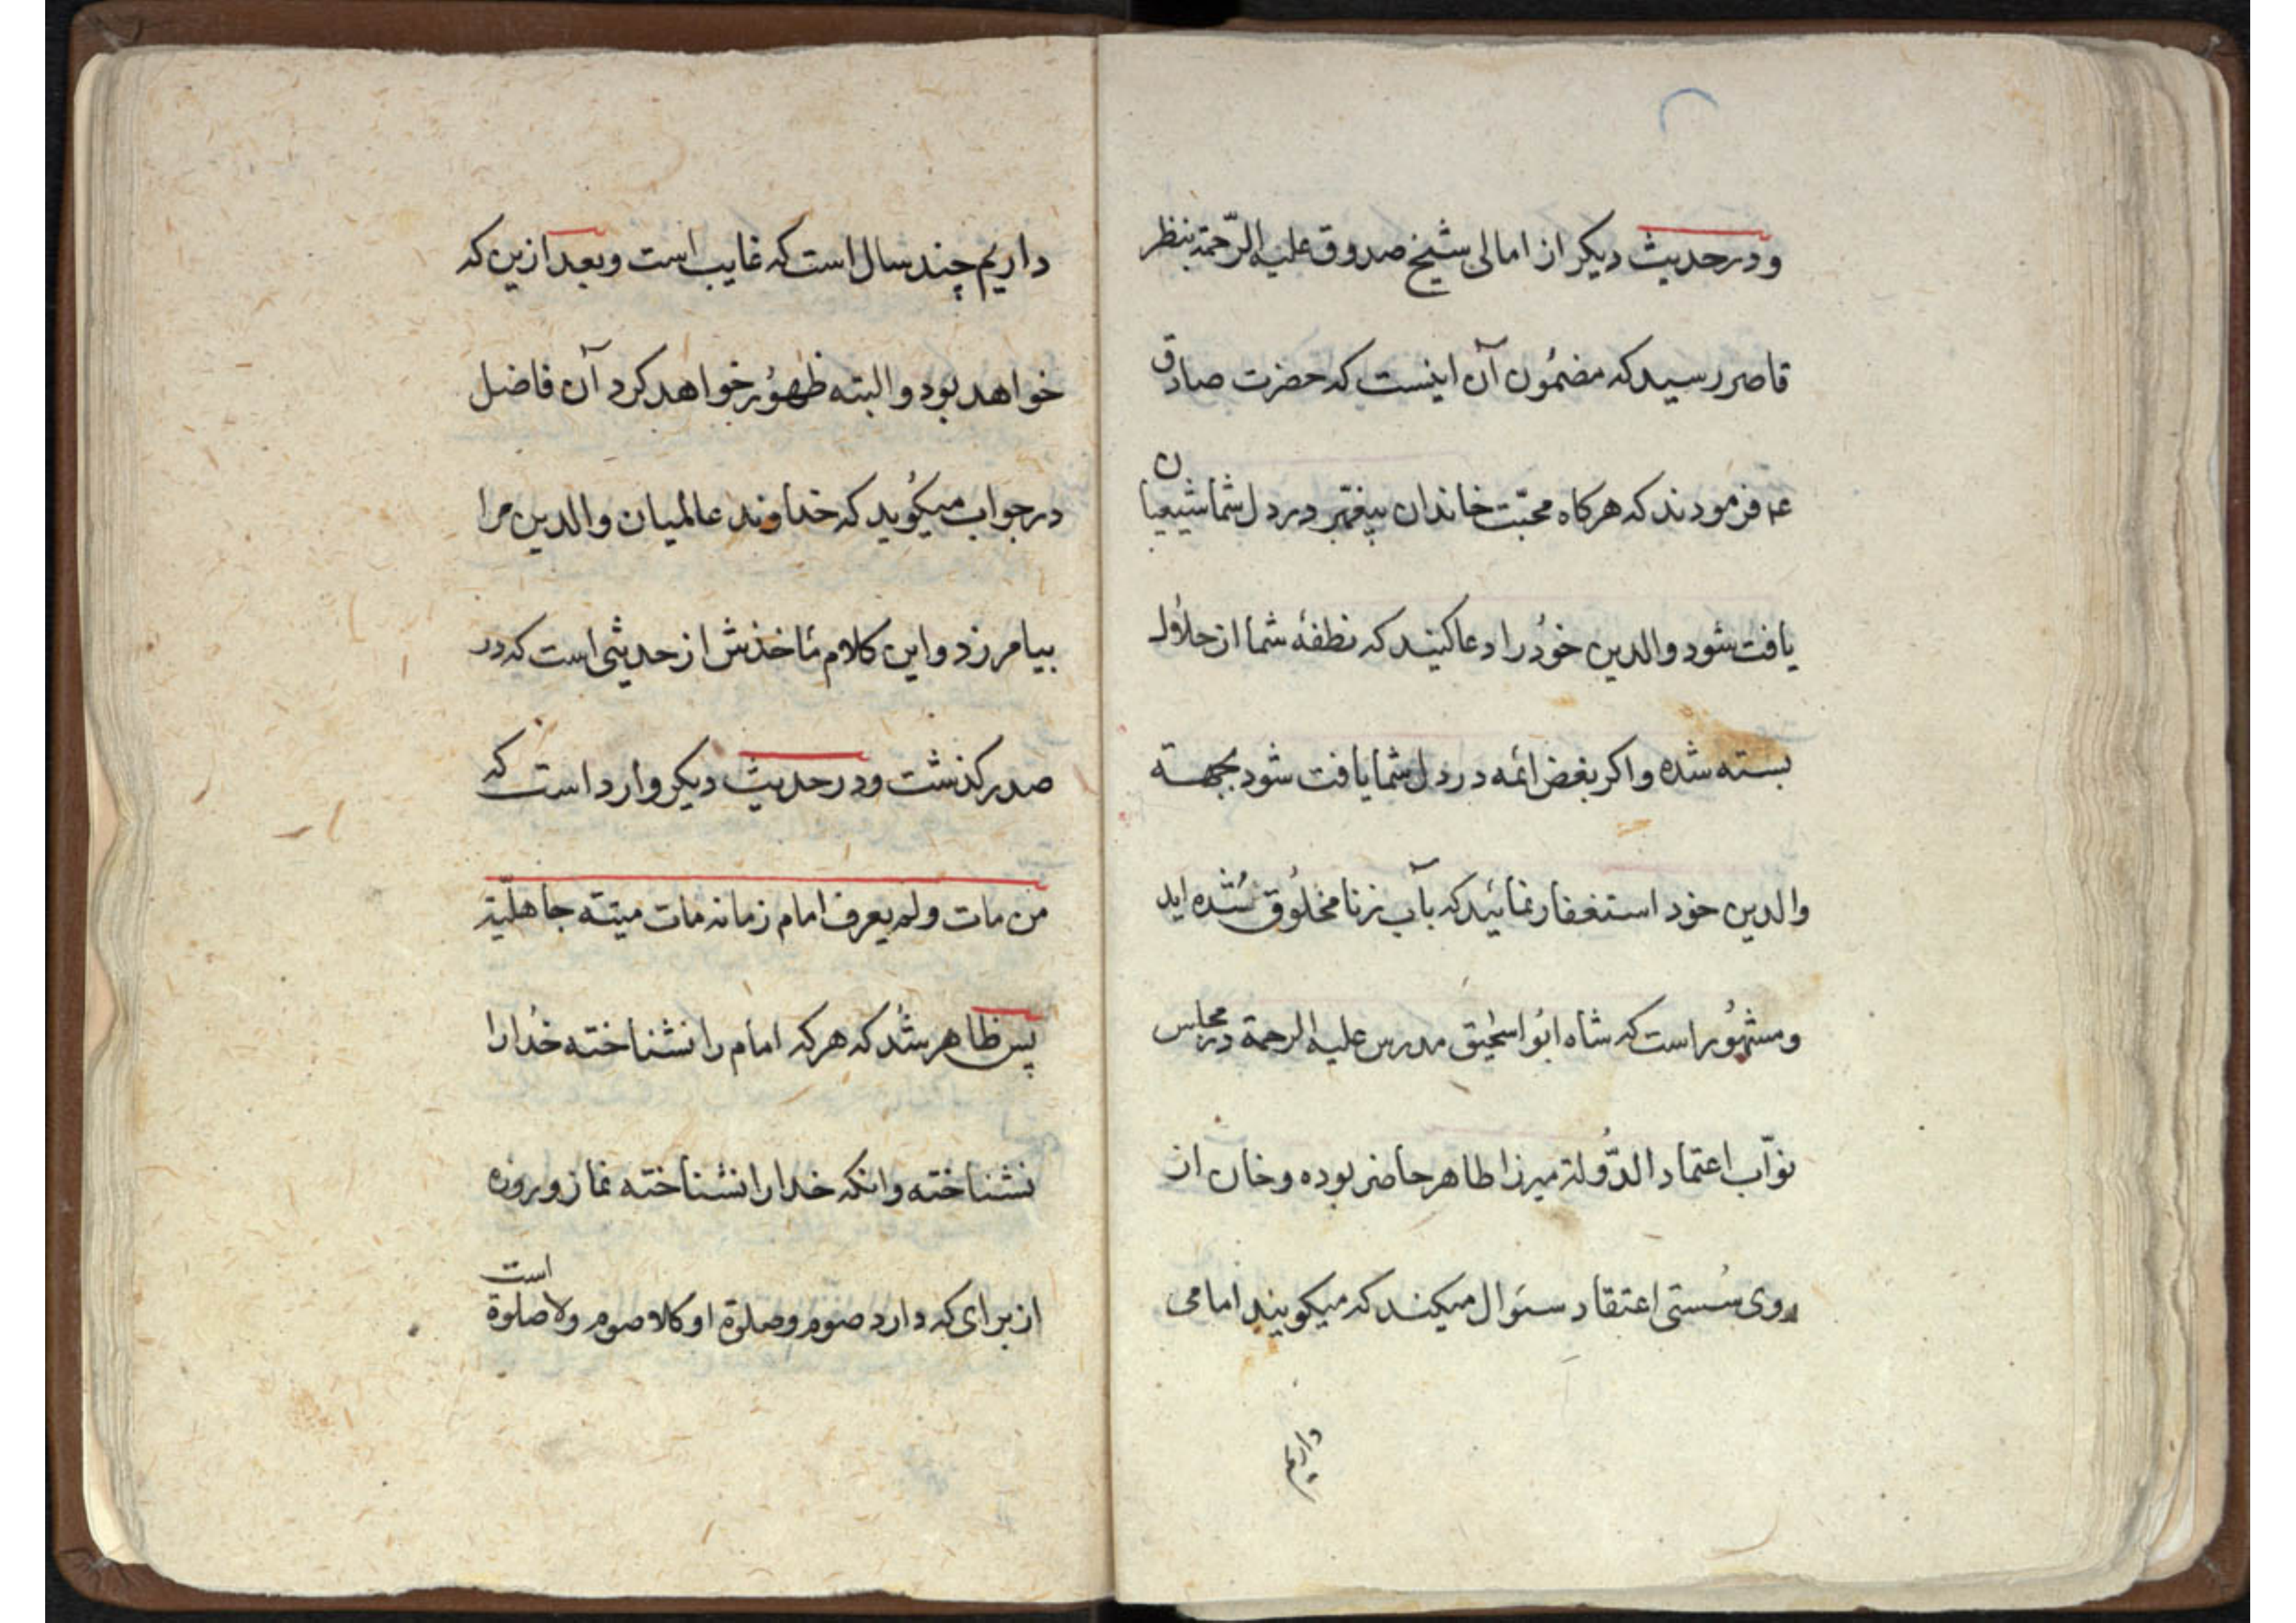 ودر حدیث دیکر از امالی شیخ صدوق علیه الرّحمة بنظر
قاصر رسید که مضمُون آن اینست که حضرت صادق
عم فرمودند که هرکاه محبّت خاندان پیغمبر در دل شما شیعیان
یافت شود والدین خوُد را دعا کنید که نطفهٔ شما از حلاُل
بسته شده واکر بغض ائمه در دل شما یافت شود بجهة
والدین خود استغفار نمائید که بآب زنا مخلُوق شُده اید
ومشهُور است که شاه ابُو اسحٰیق مدرس علیه الرحمة در مجلس
نوّاب اعتماد الدَّولة میرزا طاهر حاضر بوده وخان از
روی سُستی اعتقاد سئوال میکند که میکویند امامی
داریم
داریم چند سال است که غایب است وبعد ازین که
خواهد بود والبته ظهوُر خواهد کرد آن فاضل
در جواب میکوُید که خداوند عالمیان والدین مرا
بیامرزد واین کلام مأخذش از حدیثی است که در
صدر کذشت ودر حدیث دیکر وارد است که
من مات ولم یعرف امام زمانه مات میتة جاهلیّة
پس ظاهر شُد که هرکه امام را نشناخته خُدا را
نشناخته وانکه خدا را نشناخته نماز وروزه
از برای که دارد صوم وصلوة او کلا صوم ولا صلوة است